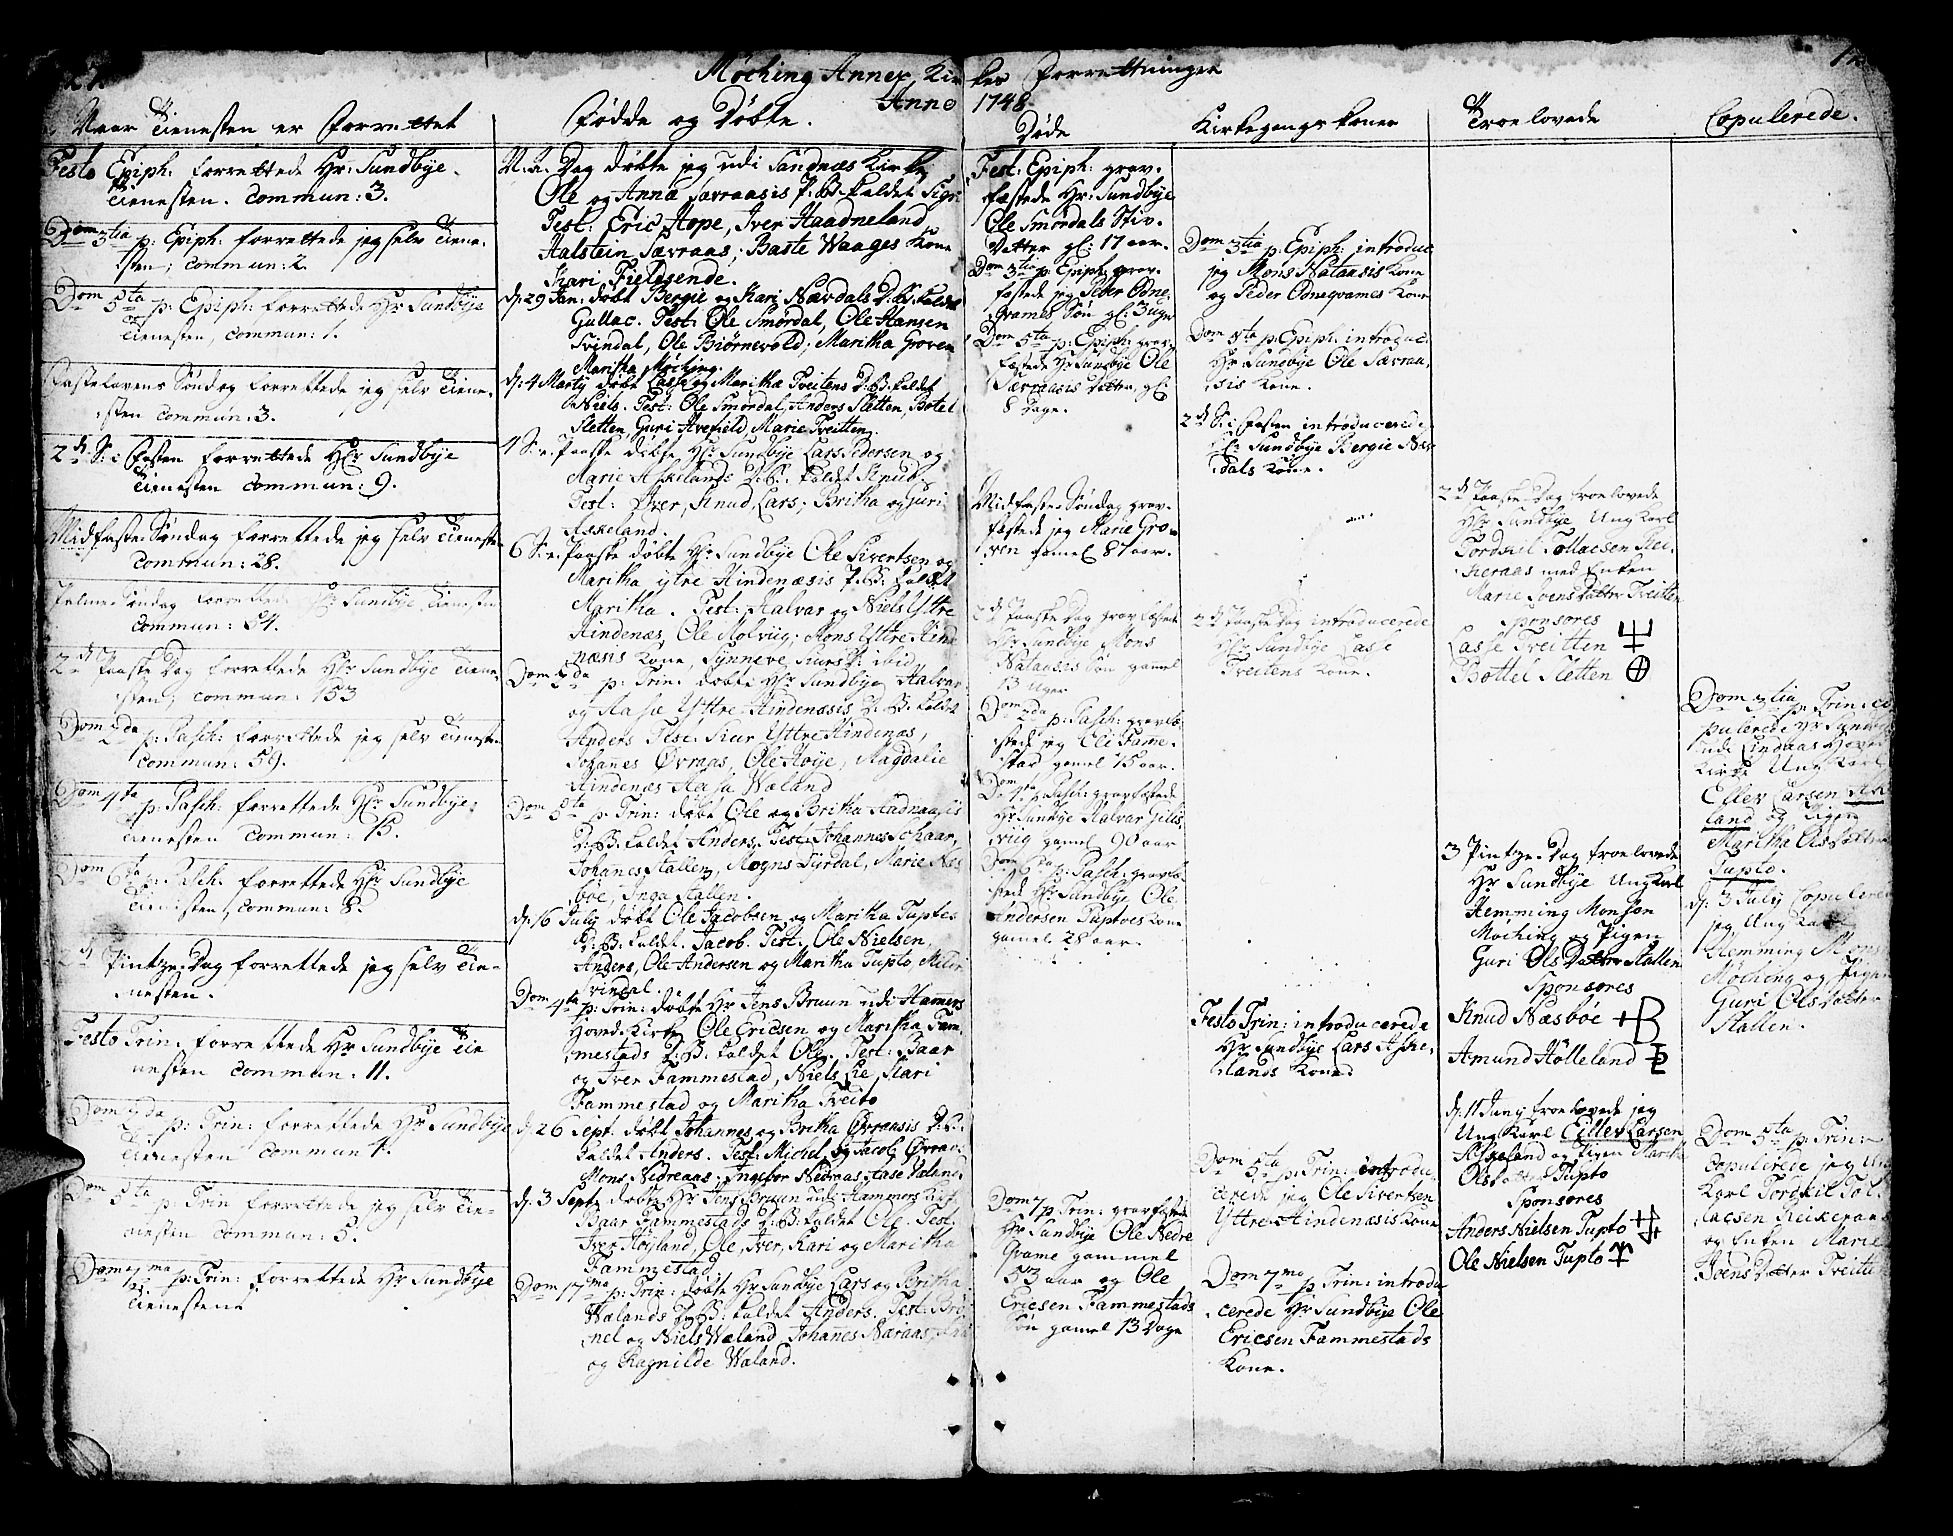 Møching Annex Kir ker Forretninger
Anno 1748.
Naar Tienesten er Forrettet
Festo Epiph: forrettede Hr: Sundbye
Tienesten. commun: 3.
Dom 3tia p: Epiph: forrettede jeg selv Tiene-
sten; commun: 2.
Dom 5ta p: Epiph: forrettede Hr Sundbye
Tienesten, commun: 1.
Fastelavens Søndag forrettede jeg selv Tiene-
sten commun: 3.
2d S: i Fasten forrettede Hr Sundbye
Tienesten commun: 9.
Midfaste Søndag forrettede jeg selv Tieneste
commun: 28.
Palme Søndag forrettede Hr Sundbye Tienesten
commun: 54.
2d Paaske Dag forrettede Hr Sundbye Tiene-
sten, commun: 153
Dom 2da p: Pasch: forrettede jeg selv Tienesten
commun: 59.
Dom 4ta p: Pasch: forrettede Hr Sundbye
Tienesten commun: 15.
Dom 6ta p: Pasch: forrettede Hr Sundbye
Tienesten, commun: 8.
2d Pintze-Dag forrettede jeg selv Tie-
nesten.
Festo Trin: forrettede Hr Sundbye Tie
nesten commun: 11.
Dom 2da p: Trin: forrettede Hr Sundbye
Tienesten commun 4.
Dom 5ta p: Trin forrettede jeg selv Tie-
nesten commun: 5.
Dom 7ma p: Trin: forrettede Hr Sundbye
Tienesten
Fødde og Døbte.
N. A. Dag døbte jeg udi Sandnæs Kirke
Ole og Anna Sævraasis P: B: kaldet
Test: Eric Hope, Iver Haadneland
Halstein Sævraas; Baste Waages Kone
Kari Fieldsende.
d: 29 Jan: døbt Bergie og Kari Nævdals D: B: kaldet
Gullac. Test: Ole Smørdal, Ole Hansen
Svindal, Ole Biørnevold; Maritha Groven
Maritha Møching.
d: 4 Marty døbt Lasse og Maritha Tveitens D: B: kaldet
Niels. Test: Ole Smørdal, Anders Sletten, Botel
Sletten, Guri Avefield, Marie Tveitten.
4 S: e: Paaske døbte Hr Sundbye Lars Pedersen og
Marie Askelands D: B: kaldet Knud.
Test: Iver, Knud, Lars; Britha og Guri
Askeland.
6 S: e: Paaske døbte Hr Sundbye Ole Sivertsen og
Maritha ytre Hindenæsis P: B: kaldet
Maritha. Test: Halvar og Niels Ytre
Hindenæs, Ole Molviig; Mons Ytre Hinde
næsis Kone, Synneve ibid.
Dom 2da p: Trin: døbte Hr Sundbye Halvar
og Aasæ Yttre Hindenæsis D: B: kaldet
Anders Test: Siur Yttre Hindenæs,
Johannes Øvraas, Ole Høye, Magdalie
Hindenæs Aasa Wæland
Dom 5ta p: Trin: døbt Ole og Britha
D: B: kaldet Anders. Test: Johannes
Johannes Stallen, Mogns Dyrdal, Marie Næs
bøe, Inga Stallen.
d: 16 July døbt Ole Jacobsen og Maritha Tuptes
D: B: kaldet Jacob. Test: Ole Nielsen,
Anders, Ole Andersen og Maritha Tupto,
Svindal.
Dom 4ta p: Trin: døbte Hr Jens Bruun udi Hamers
Hoved-Kirke Ole Ericsen og Maritha Fam-
mestads D: B: kaldet Ole. Test: Baar
og Iver Fammestad, Niels Lie, Kari
Fammestad og Maritha Tveito
d: 26 Sept: døbt Johannes og Britha Øvraasis D: B:
kaldet Anders. Test: Michel og Jacob Øvraas
Mons Nedreaas, Ingebor Nedraas Aase
d: 3 Sept: døbte Hr Jens Bruun udi Hammers Kirke
Baar Fammestads D: B: kaldet Ole. Test:
Iver Høyland, Ole, Iver, Kari og Maritha
Fammestad
Dom 17ma p: Trin: døbte Hr Sundbye Lars og Britha
Wælands D: B: kaldet Anders. Test: Brø
nel og Niels Wæland, Johannes Næraas
og Ragnilde Wæland.
Døde
Fest: Epiph: grav-
fæstede Hr: Sundbye
Ole Smørdals Stiv-
Datter gl: 17 aar.
Dom 3tia p: Epiph: grav-
fæstede jeg Peder Odne-
qvames Søn gl: 3 uger
Dom 5ta p: Epiph: grav-
fæstede Hr Sundbye Ole
Sævraasis Datter, gl:
8 Dage.
Midfaste-Søndag grav-
fæstede jeg Marie Gro-
ven gamel 87 aar.
2d Paaske Dag gravfæstede
Hr Sundbye Mons
Nataasis Søn gamel
13 Uger
Dom 2da p: Pasch: gravfæ-
stede jeg Eli Famme-
stad gamel 15 aar.
Dom 4ta p: Pasch: gravfæstede
Hr Sundbye Halvar
viig gamel 90 aar
Dom 6ta p: Pasch: gravfæ-
stede Hr Sundbye Ole
Andersen Tuptoes Kone
gamel 28 aar.
Dom 7 p: Trin: gravfæstede
Hr Sundbye Ole Nedre
Qvame gammel
53 aar og Ole
Ericsen Fammestads
Søn gamel 13 Dage
Kirkegangs Koner
Dom 3tia p: Epiph: introduc
jeg Mons Nataasis Kone
og Peder Odneqvames Kone
Dom 5ta p: Epiph: introduc:
Hr Sundbye Ole Sævraa-
sis Kone.
2d S: i Fasten introducerede
Hr Sundbye Bergie Næv
dals Kone.
2d Paaske Dag introducerede
Hr Sundbye Lasse
Tveitens Kone.
Festo Trin: introducerede
Hr Sundbye Lars Aske-
lands Kone.
Dom 5ta p: Trin: introdu-
cerede jeg Ole Sivertsen
Yttre Hindenæsis Kone
Dom 7ma p: Trin: introdu
cerede Hr Sundbye Ole
Ericsen Fammestads
Kone.
Troelovede
2d Paaske-Dag troelovede
Hr Sundbye Ung Karl
Tordkil Tollaesen Rei-
keraas med Enken
Marie Joens Datter Tveitten
Sponsores
Lasse Tveitten
Bottel Sletten
3 Pintze-Dag troelovede
Hr Sundbye Ung Karl
Hemming Monsøn
Møching og Pigen
Guri Ols Datter Stallen
Sponsores
Knud Næsbøe
Amund Hølleland
d: 11 Juny troelovede jeg
Ung Karl Ellev Larsen
Askeland og Pigen Marith
Olsdatter Tupto
Sponsores
Anders Nielsen Tupto
Ole Nielsen Tupto
Copulerede.
Dom 3tia p: Trin: co
pulerede Hr Sundbye
udi Lindaas Hoved
Kirke Ung Karl
Ellev Larsen Aske
land og Pigen
Maritha Olsdatter
Tupto.
d: 3 July Copulerede
jeg Ung Karl
Hemming Mons
Møching og Pigen
Guri Olsdatter
Stallen.
Dom 5ta p: Trin:
Copulerede jeg Ung
Karl Tordkil Tol-
laesen Reikeraas
og Enken Marie
Joens Datter Tveite